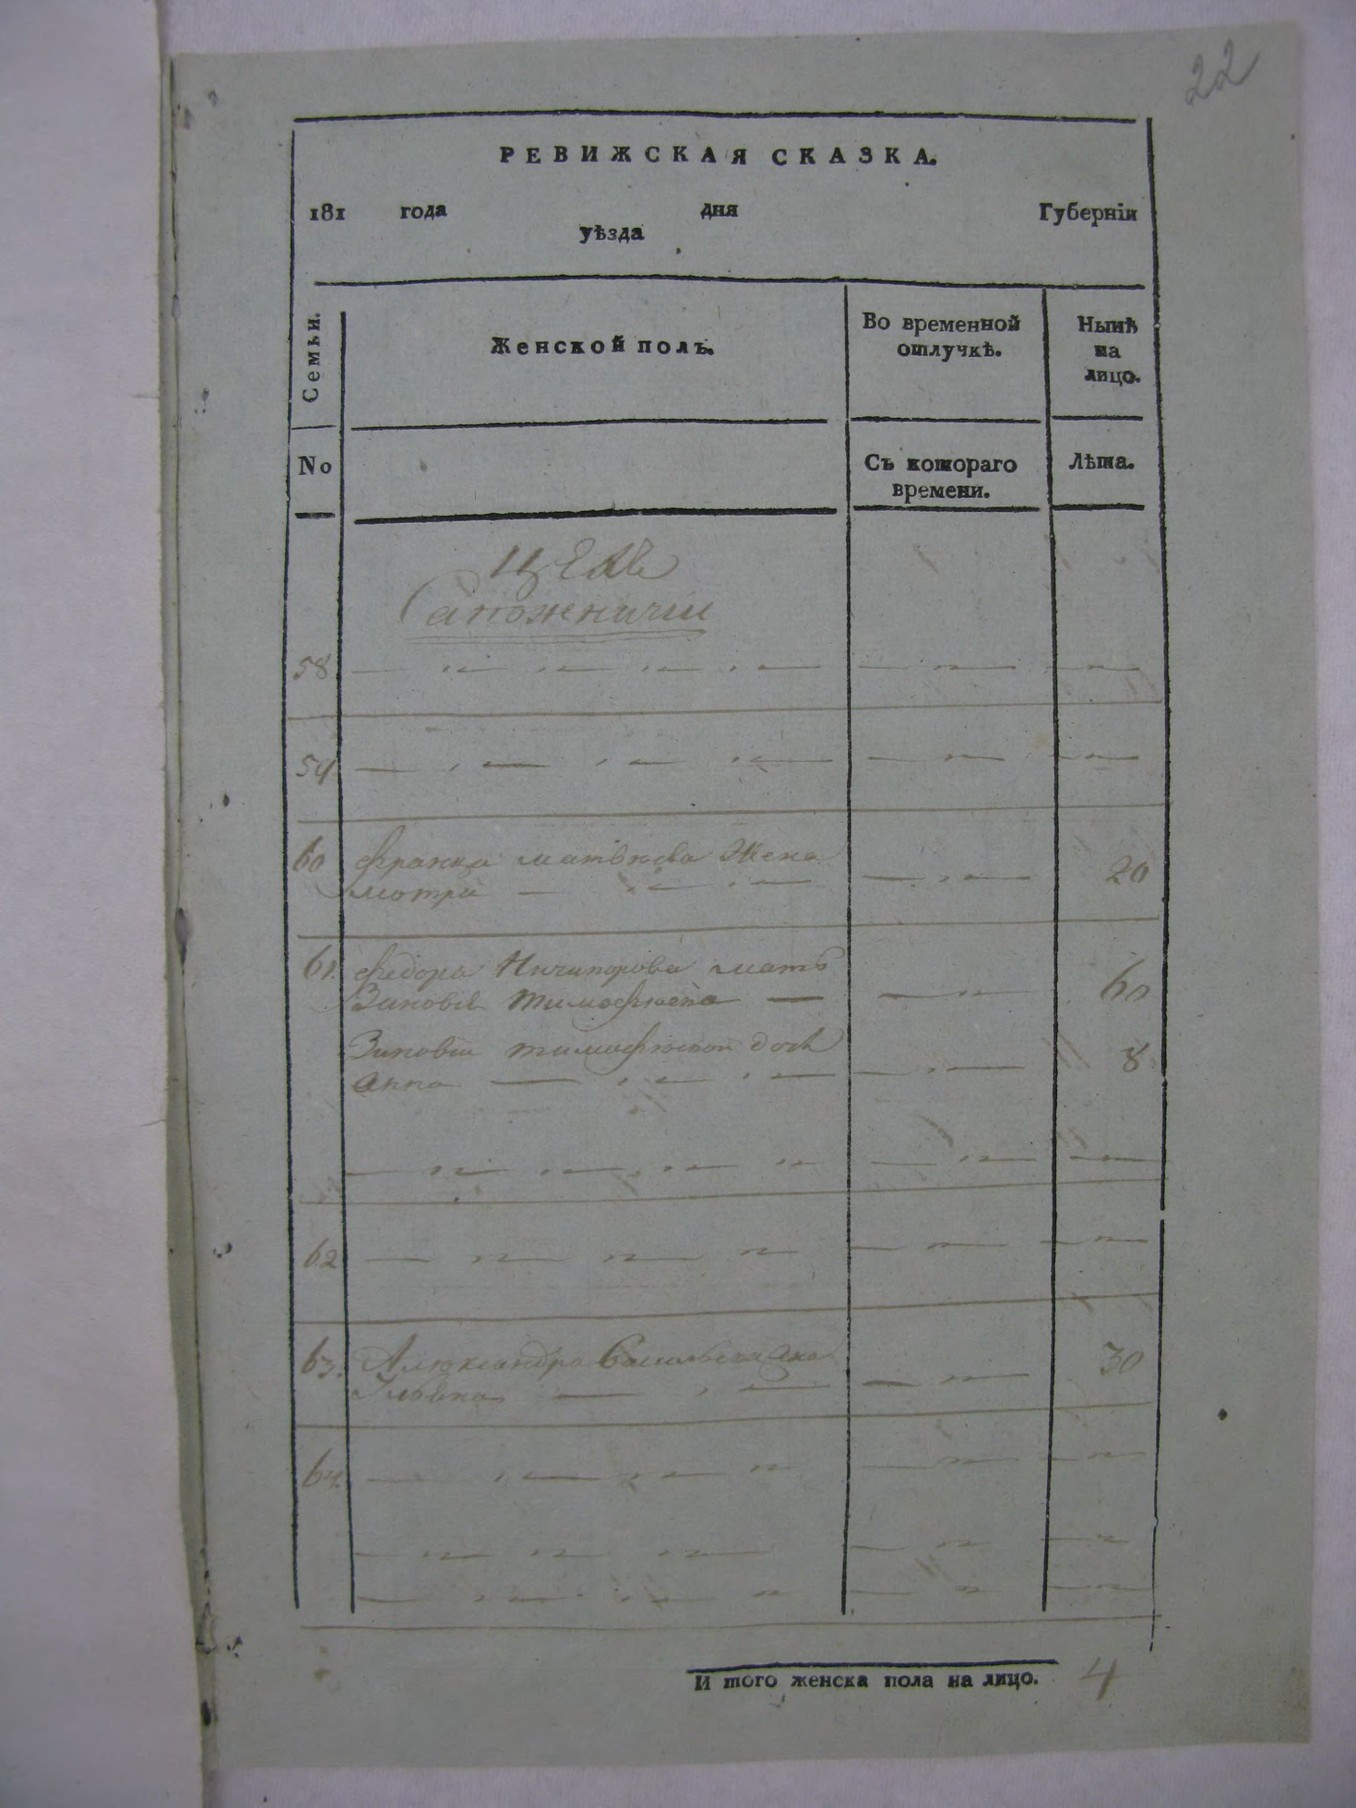 22
РЕВИЖСКАЯ СКАЗКА.
181 года дня Губерніи
уѣзда
Семьи.
Женской полъ.
Во временной
отлучкѣ.
Нынѣ
на
лицо.
No
Съ котораго
времени.
Лѣта.
Цехъ
Сапожничій
58
59
60 жена
мотря 20
61. Федора Ничипорова мать
Зиновія 60
Зиновія дочь
анна 8
62
63. Александра жена
30
64.
И того женска пола на лицо. 4